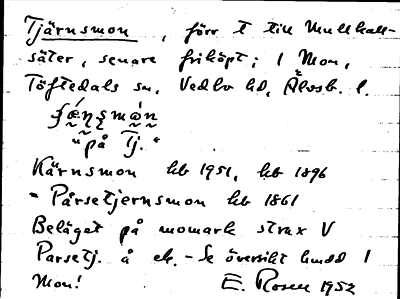 Tjärnsmon, förr t till Mullkall-
säter, senare friköpt; 1 Mon,
Töftedals sn, Vedbo hd, Älvsb. l.
"på Tj."
Kärnsmon kb 1951, kb 1896
" Pårsetjernsmon kb 1861
Beläget på momark strax V
Parsetj. å ek. - Se översikt hmdd 1
Mon! E. Rosen 1952